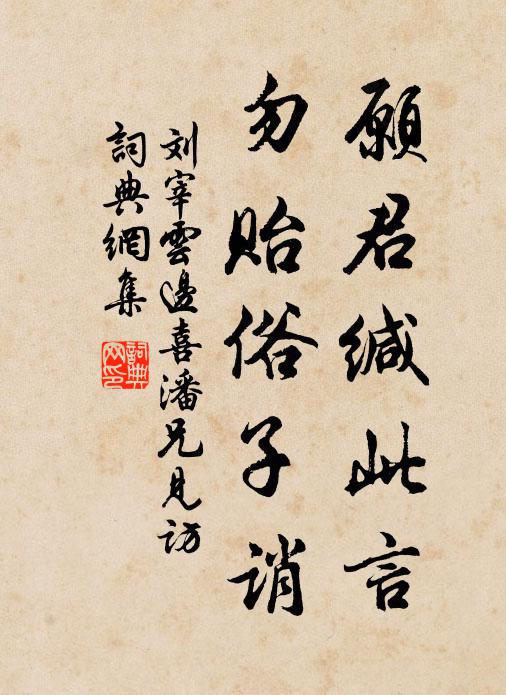 願君緘此言
勿貽俗子誚
刘宰雲邊喜潘兄見訪
詞典網集
詞典网印